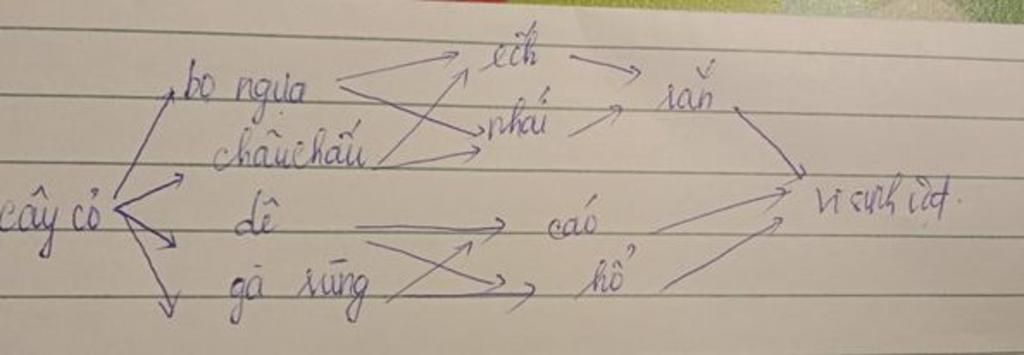 ếch
bọ ngựa
rắn
nhái
châu chấu
cây cỏ
vi sinh vật.
dê
cáo
gà rừng
hổ